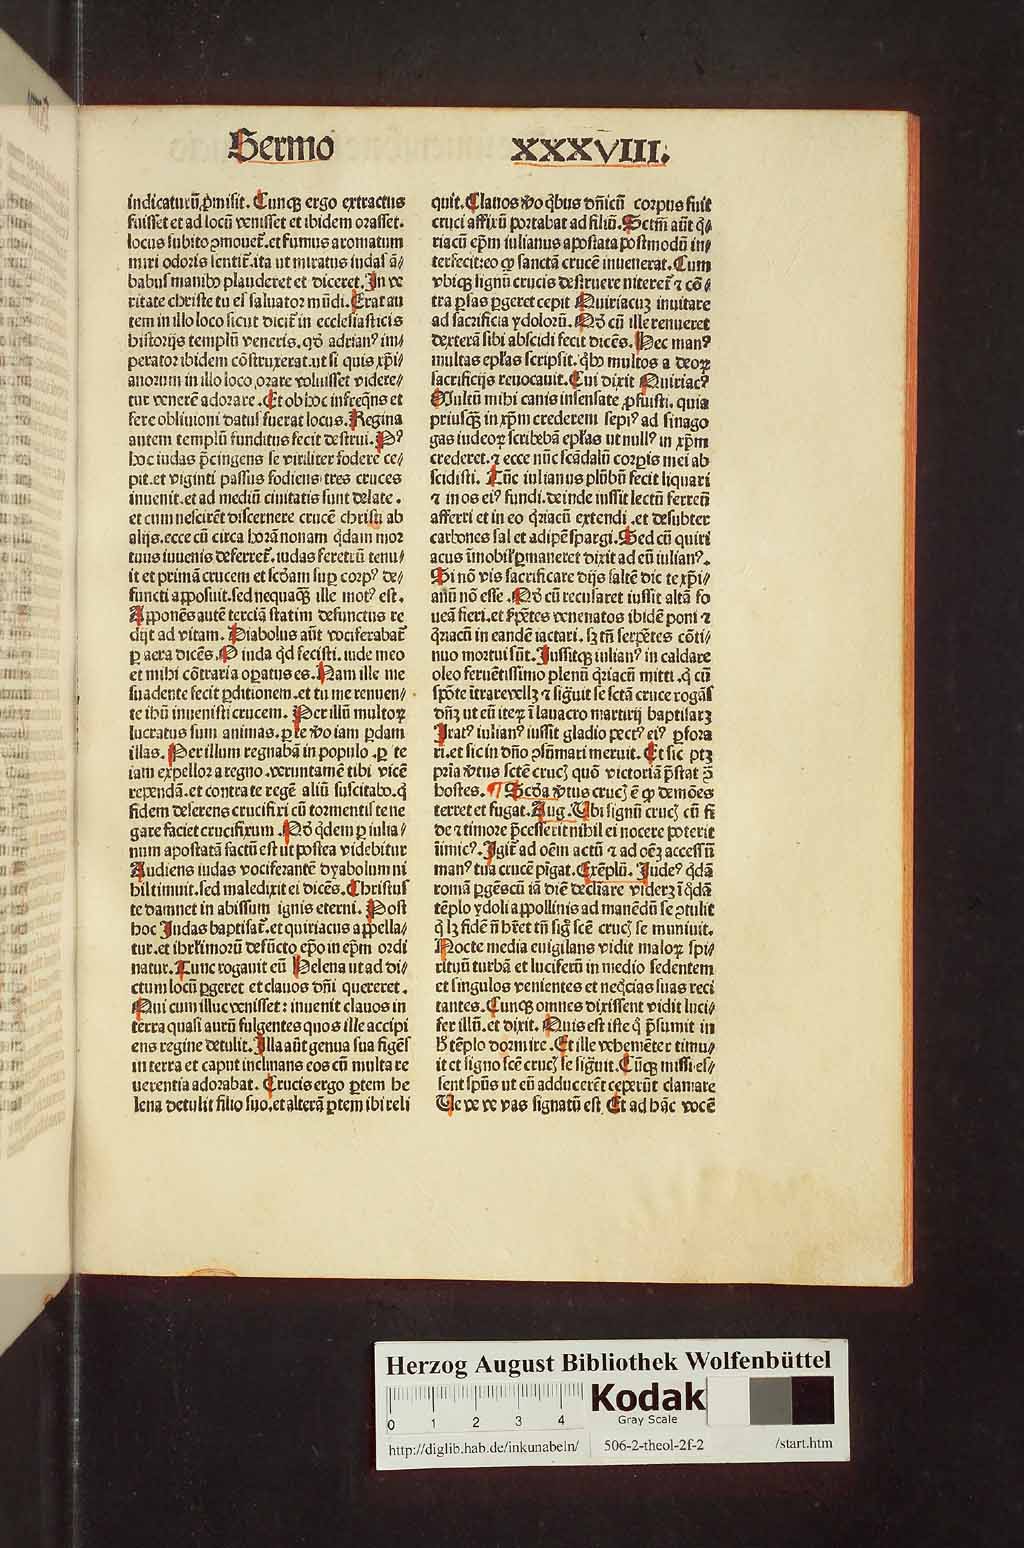 Sermo XXXVIII.
indicaturū ꝓmisit. Cunqꝫ ergo extractus
fuisset et ad locū venisset et ibidem orasset.
locus subito ꝯmouet̄. et fumus aromatum
miri odoris sentit̄. ita ut miratus iudas ā⸗
babus manibꝰ plauderet et diceret. In ve
ritate christe tu es saluator mūdi. Erat au
tem in illo loco sicut dicit̄ in ecclesiasticis
historijs templū veneris. qđ adrianꝰ im⸗
perator ibidem cōstruxerat. ut si quis xp̄i⸗
anorum in illo loco orare voluisset videre⸗
tur venerē adorare. Et ob hoc infreq̄ns et
fere obliuioni datus fuerat locus. Regina
autem templū funditus fecit destrui. Pꝰ
hoc iudas p̄cingens se viriliter fodere ce⸗
pit. et viginti passus fodiens tres cruces
inuenit. et ad mediū ciuitatis sunt delate.
et cum nescirēt discernere crucē christi ab
alijs. ecce cū circa horā nonam q̇dam mor
tuus iuuenis deferret̄. iudas feretrū tenu⸗
it et primā crucem et scd̄am suꝑ corpꝰ de⸗
functi apposuit. sed nequaqꝫ ille motꝰ est.
Apponēs autē terciā statim defunctus re
dijt ad vitam. Diabolus aūt vociferabat̄
ꝑ aera dicēs. O iuda qd̄ fecisti. iude meo
et mihi cōtraria oꝑatus es. Nam ille me
suadente fecit ꝓditionem. et tu me renuen⸗
te ihū inuenisti crucem. Per illū multoꝝ
lucratus sum animas. ꝑ te vo iam ꝑdam
illas. Per illum regnabā in populo. ꝑ te
iam expellor a regno. veruntamē tibi vicē
rependā. et contra te regē aliū suscitabo. q̇
fidem deserens crucifixi cū tormentis te ne
gare faciet crucifixum. Qđ q̇dem ꝑ iulia⸗
num apostatā factū est ut postea videbitur
Audiens iudas vociferantē dyabolum ni
hil timuit. sed maledixit ei dicēs. Christus
te damnet in abissum ignis eterni. Post
hoc Iudas baptisat̄. et quiriacus appella⸗
tur. et ihrl̄imorū defūcto ep̄o in ep̄m ordi
natur. Tunc rogauit eū Helena ut ad di⸗
ctum locū ꝑgeret et clauos dn̄i quereret.
Qui cum illuc venisset: inuenit clauos in
terra quasi aurū fulgentes quos ille accipi
ens regine detulit. Illa aūt genua sua figēs
in terra et caput inclinans eos cū multa re
uerentia adorabat. Crucis ergo ꝑtem he
lena detulit filio suo. et alterā ꝑtem ibi reli
quit. Clauos vo q̇bus dn̄icū corpus fuit
cruci affixū portabat ad filiū. Sctm̄ aūt q̇⸗
riacū ep̄m iulianus apostata postmodū in⸗
terfecit: eo ꝙ sanctā crucē inuenerat. Cum
vbiqꝫ lignū crucis destruere niteret̄ ⁊ cō⸗
tra ꝑsas ꝑgeret cepit Quiriacuꝫ inuitare
ad sacrificia ydolorū. Qđ cū ille renueret
dexterā sibi abscidi fecit dicēs. Hec manꝰ
multas epl̄as scripsit. q̇bꝰ multos a deoꝝ
sacrificijs reuocauit. Cui dixit Quiriacꝰ
Multū mihi canis insensate ꝓfuisti. quia
priusqꝫ in xp̄m crederem sepiꝰ ad sinago
gas iudeoꝝ scribebā epl̄as ut nullꝰ in xp̄m
crederet. ⁊ ecce nūc scādalū corp̄is mei ab
scidisti. Tūc iulianus plūbū fecit liquari
⁊ in os eiꝰ fundi. deinde iussit lectū ferreū
afferri et in eo q̇riacū extendi. et desubter
carbones sal et adipē spargi. Sed cū quiri
acus īmobil̓ ꝑmaneret dixit ad eū iulianꝰ.
Si nō vis sacrificare dijs saltē dic te xp̄i⸗
anū nō esse. Qđ cū recusaret iussit altā fo
ueā fieri. et s̓pētes venenatos ibidē poni ⁊
q̇riacū in eandē iactari. sꝫ tn̄ serpētes cōti⸗
nuo mortui sūt. Iussitqꝫ iulianꝰ in caldare
oleo feruētissimo plenū q̇riacū mitti. q̇ cū
spōte ītrare velleꝫ ⁊ sig̓uit se sctā cruce rogās
dn̄ꝫ ut cū iteꝝ ī lauacro martirij baptisarꝫ
Iratꝰ iulianꝰ iussit gladio pectꝰ eiꝰ ꝑfora
ri. et sic in dn̄o ꝯsūmari meruit. Et sic ptꝫ
pr̄ia v̓tus scte crucꝭ quō victoriā p̄stat ꝯ̄
hostes. ¶ Scd̄a v̓tus crucꝭ ē ꝙ demōes
terret et fugat. Aug. Ubi signū crucꝭ cū fi
de ⁊ timore p̄cesserit nihil ei nocere poterit
īimicꝰ. Igit̄ ad oēm actū ⁊ ad oēꝫ accessū
manꝰ tua crucē pīgat. Exēplū. Iudeꝰ q̇dā
romā ꝑgēs cū iā diē decliare viderꝫ ī q̇dā
tēplo ydoli appollinis ad manēdū se ꝯtulit
q̇ lꝫ fidē n̄ hr̄et tn̄ sig̓ scē crucꝭ se muniuit.
Nocte media euigilans vidit maloꝝ spi⸗
rituū turbā et luciferū in medio sedentem
et singulos venientes et neq̇cias suas reci
tantes. Cunqꝫ omnes dixissent vidit luci⸗
fer illū. et dixit. Quis est iste q̇ p̄sumit in
h̓ tēplo dormire. Et ille vehemēter timu⸗
it et signo scē crucꝭ se sig̓uit. Cūqꝫ missi es⸗
sent sp̄us ut eū adducerēt ceperūt clamare
Ue ve ve vas signatū est Et ad hāc vocē
Herzog August Bibliothek Wolfenbüttel
0 1 2 3 4
Kodak
Gray Scale
http://diglib.hab.de/inkunabeln/ 506-2-theol-2f-2 /start.htm